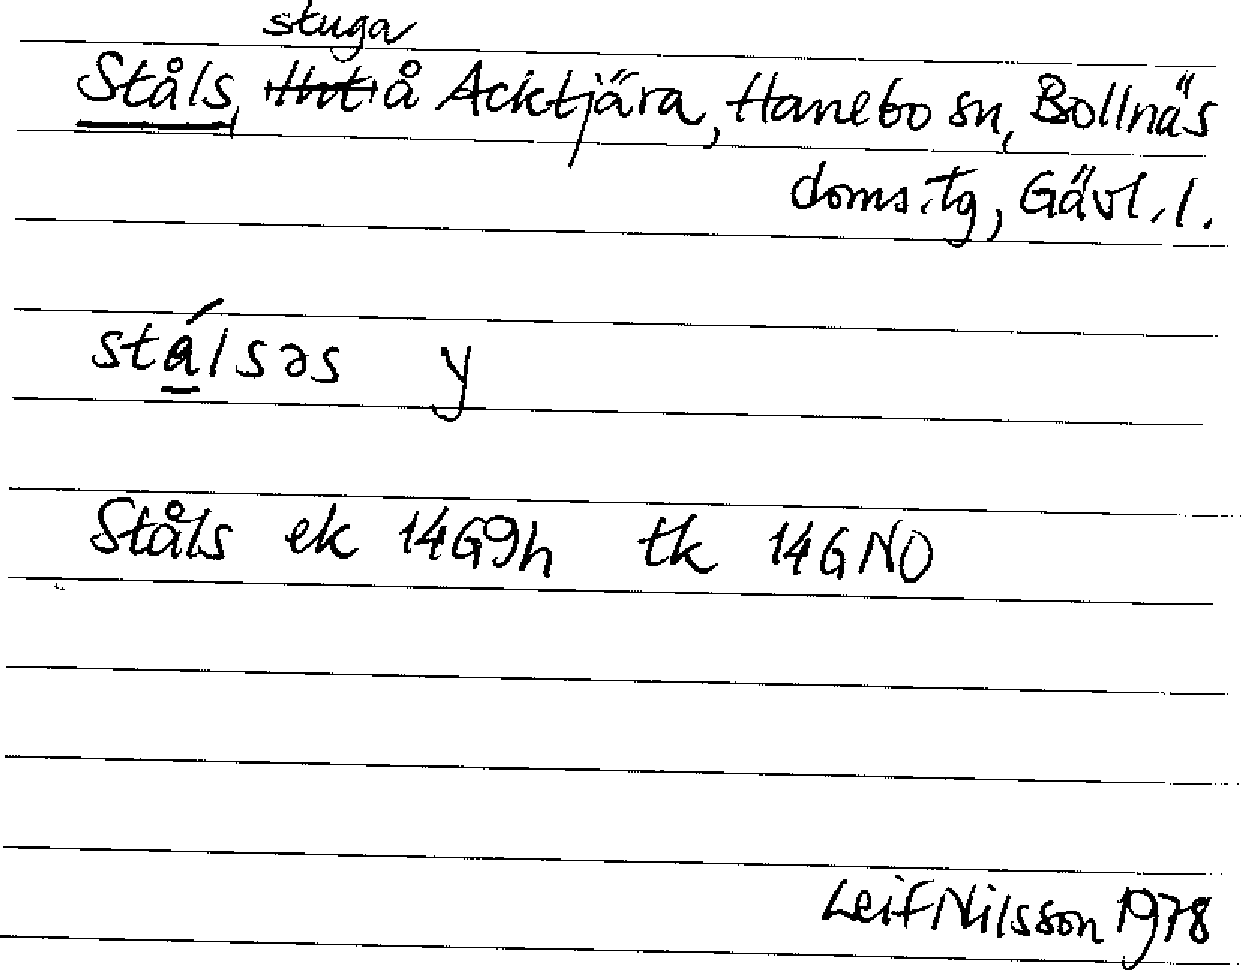 stuga
Ståls, å Acktjära, Hanebo sn, Bollnäs
doms.tg, Gävl.l.
stá̱lsəs y
Ståls ek 14G9h tk 14GNO
Leif Nilsson 1978